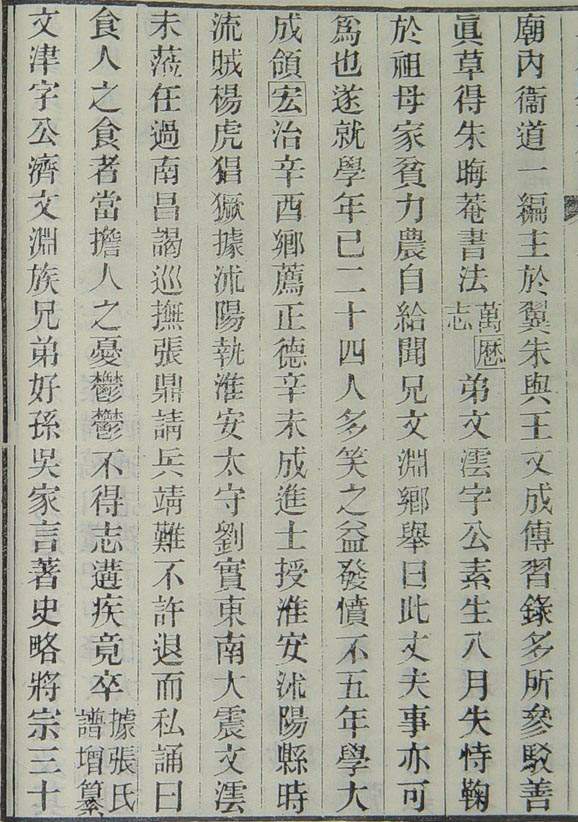 廟內衞道一編主於翼朱與王文成傳習錄多所參駁善
眞草得朱晦菴書法萬曆志弟文澐字公素生八月失恃鞠
於祖母家貧力農自給聞兄文淵鄉舉曰此丈夫事亦可
爲也遂就學年已二十四人多笑之益發憤不五年學大
成領宏治辛酉鄉薦正德辛未成進士授淮安沭陽縣時
流賊楊虎猖獗據沭陽執淮安太守劉實東南大震文澐
未蒞任過南昌謁巡撫張鼎請兵靖難不許退而私誦曰
食人之食者當擔人之憂鬱鬱不得志遘疾竟卒據張氏譜增纂
文津字公濟文淵族兄弟好孫吳家言著史略將宗三十